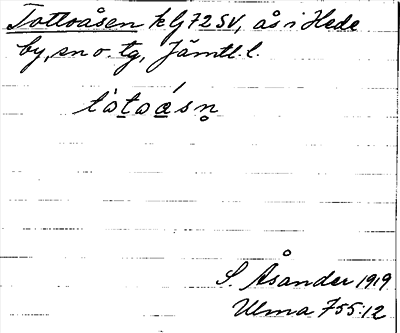 Tottoåsen kG72SV, ås i Hede
by, sn o. tg, Jämtl. l.
S. Åsander 1919
Ulma 755:12